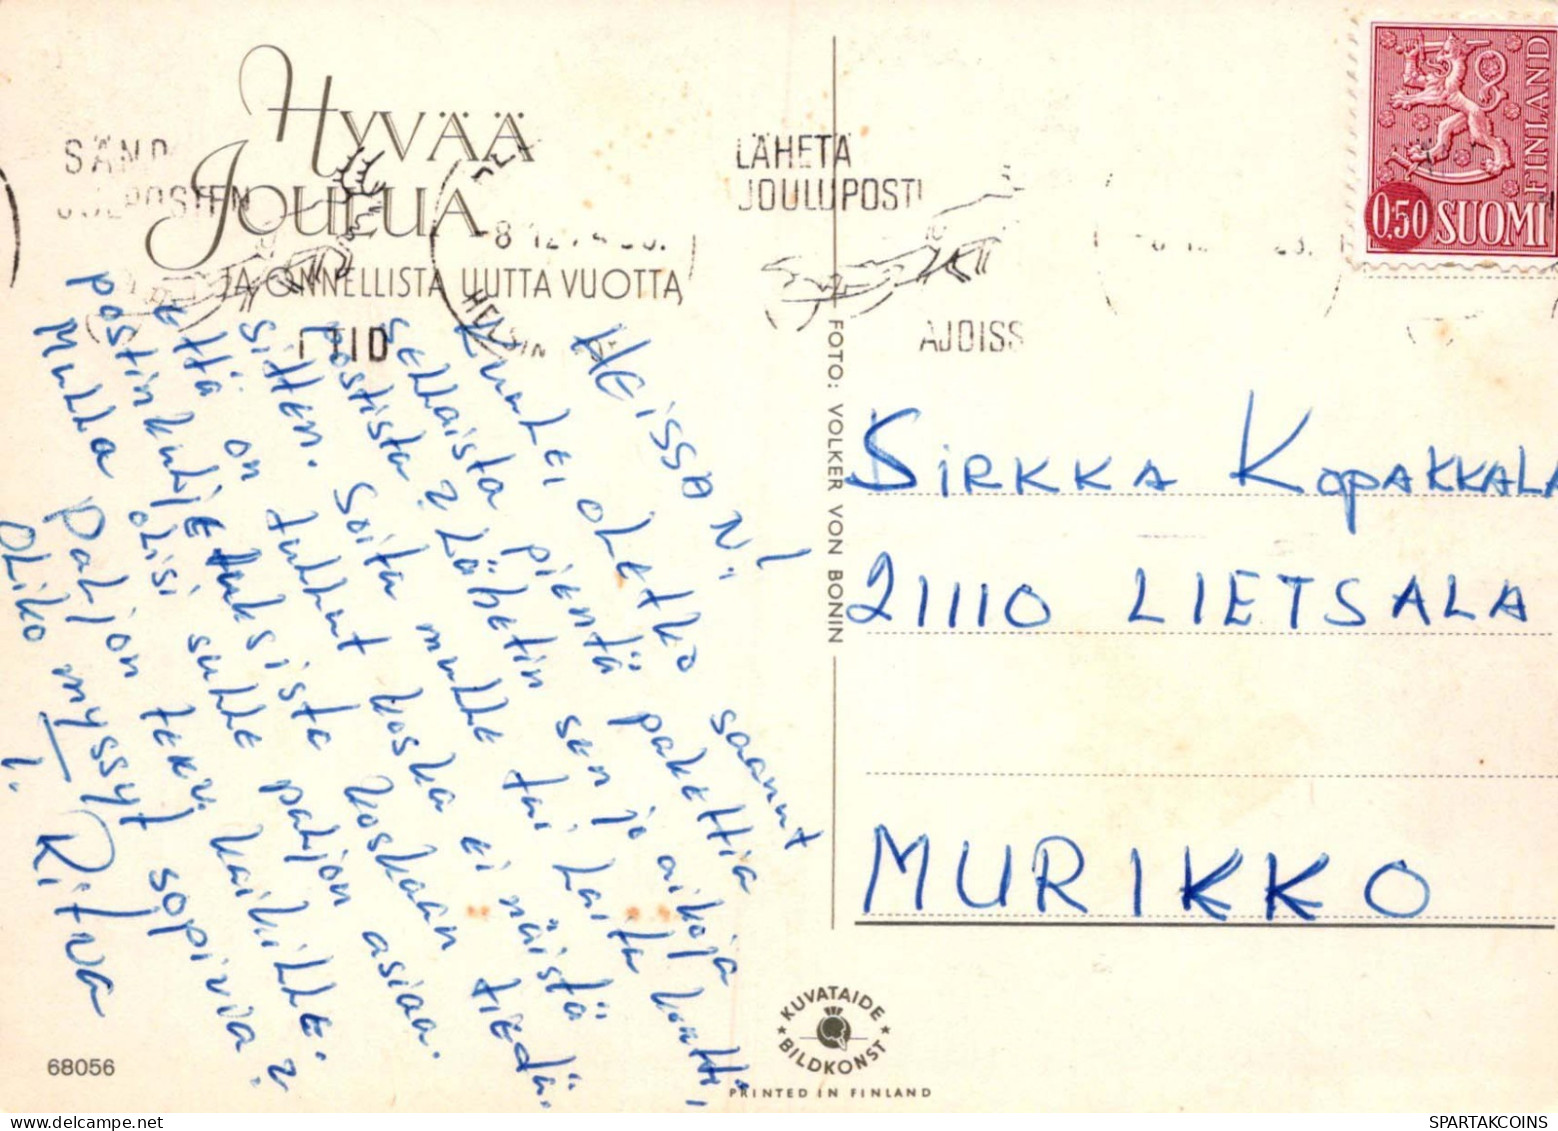 HYVÄÄ
JOULUA
JA ONNELLISTA UUTTA VUOTTA
SÄND
JULPOSTEN
I TID
8 12 74
LÄHETÄ
JOULUPOSTI
AJOISS
0,50 SUOMI
FINLAND
HEISSAN!
Kuule, oletko saanut
sellaista pientä pakettia
postista? Lähetin sen jo aikoja
sitten. Soita mulle tai laita kortti,
että on tullut koska ei näistä
postinkuljetuksista koskaan tiedä.
Mulla olisi sulle paljon asiaa.
Paljon terv. kaikille.
Oliko myssyt sopivia?
Ritva
FOTO: VOLKER VON BONIN
SIRKKA KOPAKKALA
21110 LIETSALA
MURIKKO
KUVATAIDE
BILDKONST
PRINTED IN FINLAND
68056
SPARTAKCOINS